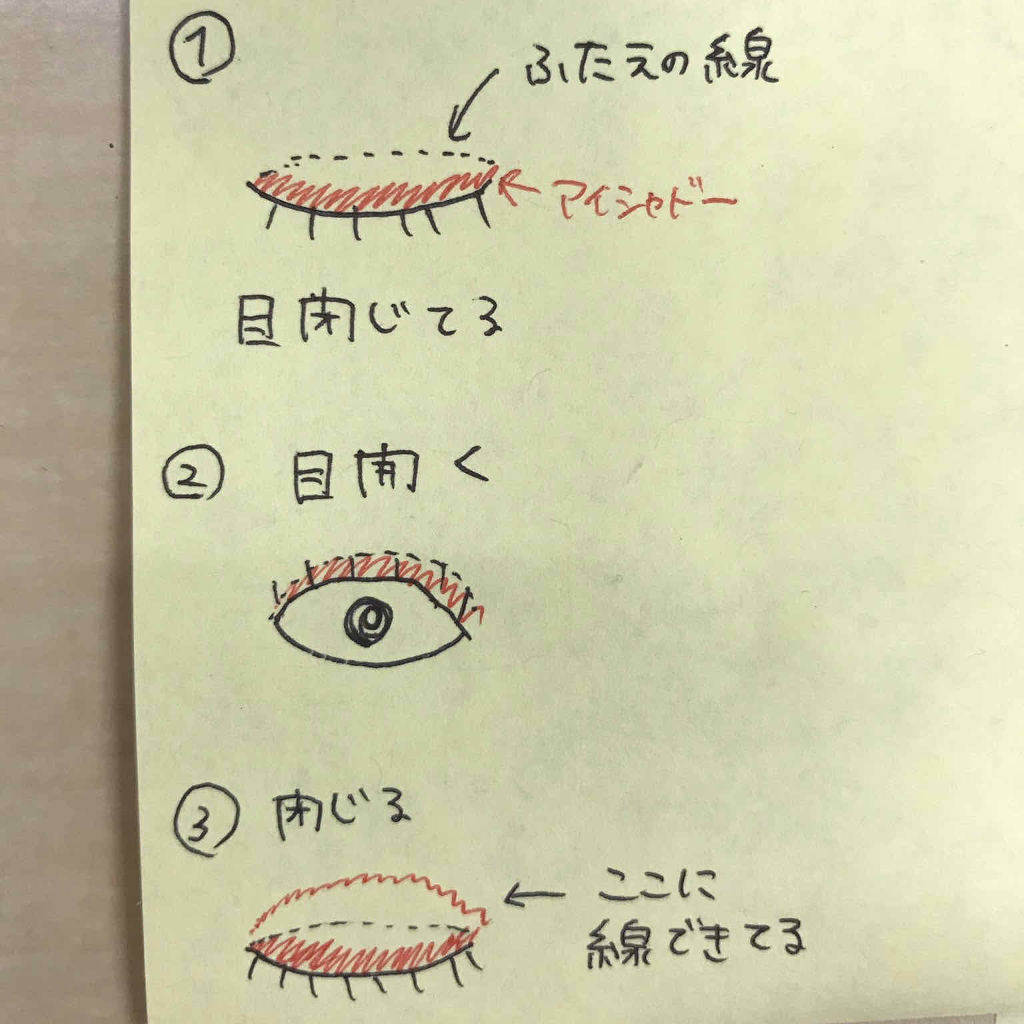 ①
ふたえの線
アイシャドー
目閉じてる
② 目開く
③ 閉じる
ここに
線できてる